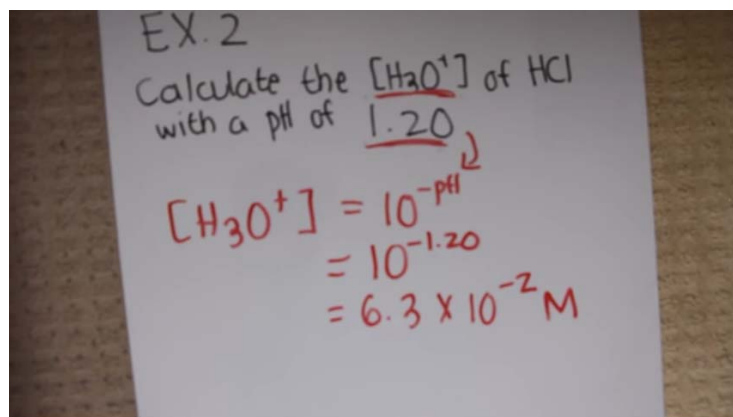 EX. 2
Calculate the [H₃O⁺] of HCl
with a pH of 1.20
[H₃O⁺] = 10⁻ᵖᴴ
= 10⁻¹·²⁰
= 6.3 X 10⁻² M